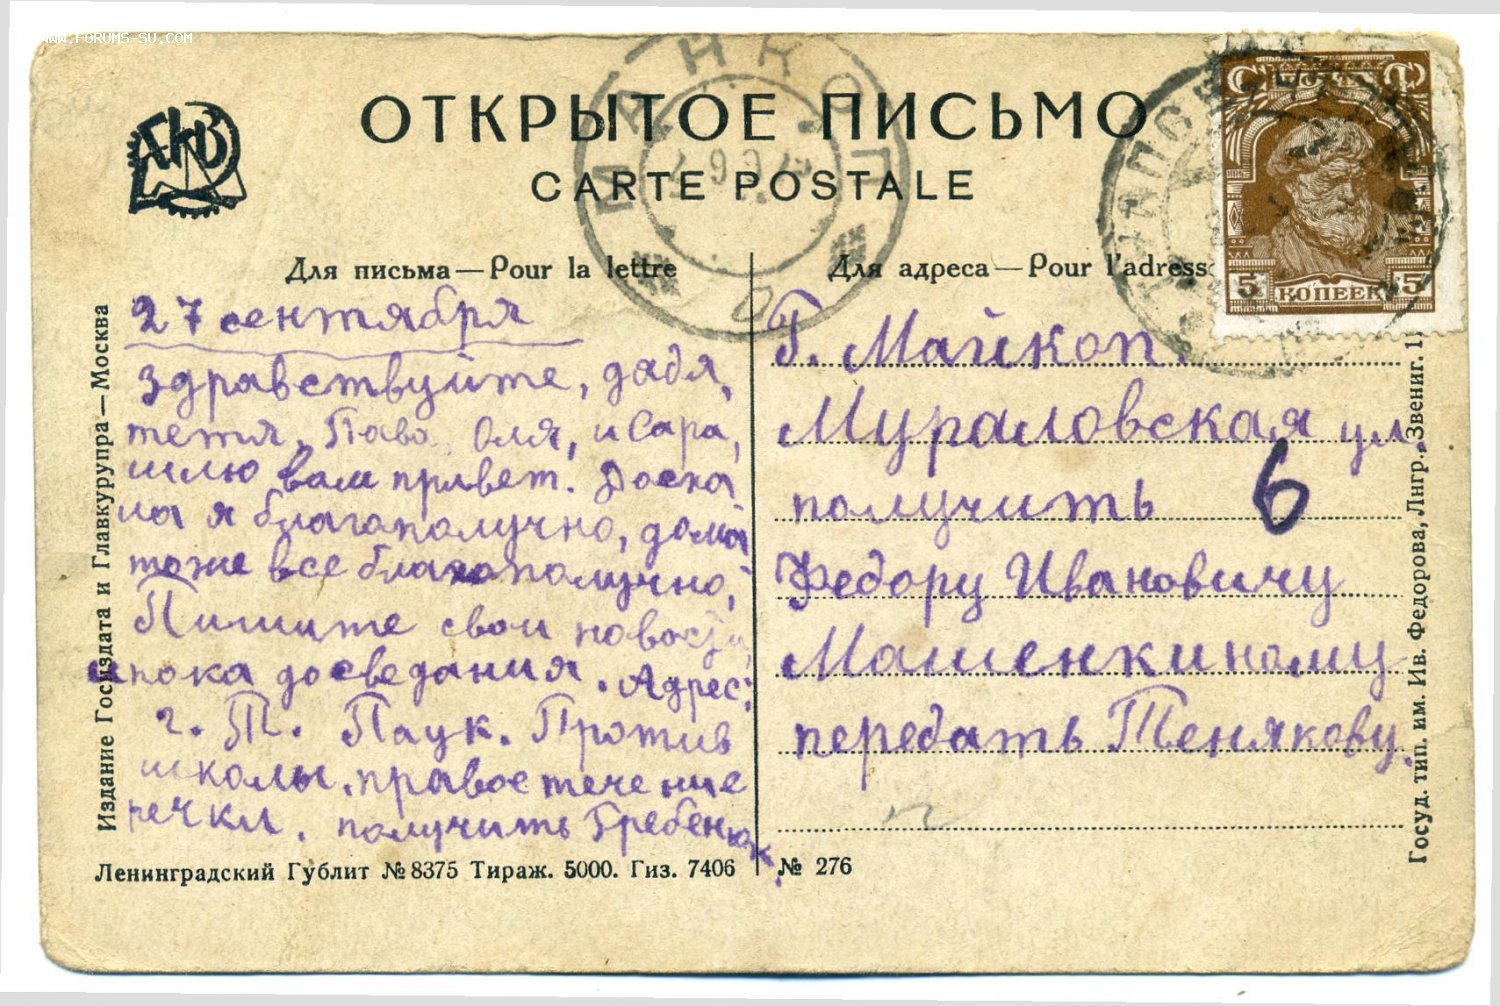 WWW.FORUMS-SU.COM
ОТКРЫТОЕ ПИСЬМО
CARTE POSTALE
МАЙКОП
СССР
5 КОПЕЕК 5
Для письма — Pour la lettre
27 сентября
здравствуйте, дядя,
тетя, Пава, Оля, и Сара,
шлю вам привет. Доеха
ла я благополучно, дома
тоже все благополучно,
Пишите свои новости,
а пока досведания. Адрес:
г. Т. Паук. Против
школы, правое течение
речки. получить Гребенюк.
Для адреса — Pour l'adresse
Г. Майкоп.
Мураловская ул.
получить 6
Федору Ивановичу
Машенкиному
передать Тенякову.
Издание Госиздата и Главкурупра — Москва
Госуд. тип. им. Ив. Федорова, Лнгр. Звениг.
Ленинградский Гублит № 8375 Тираж. 5000. Гиз. 7406
№ 276